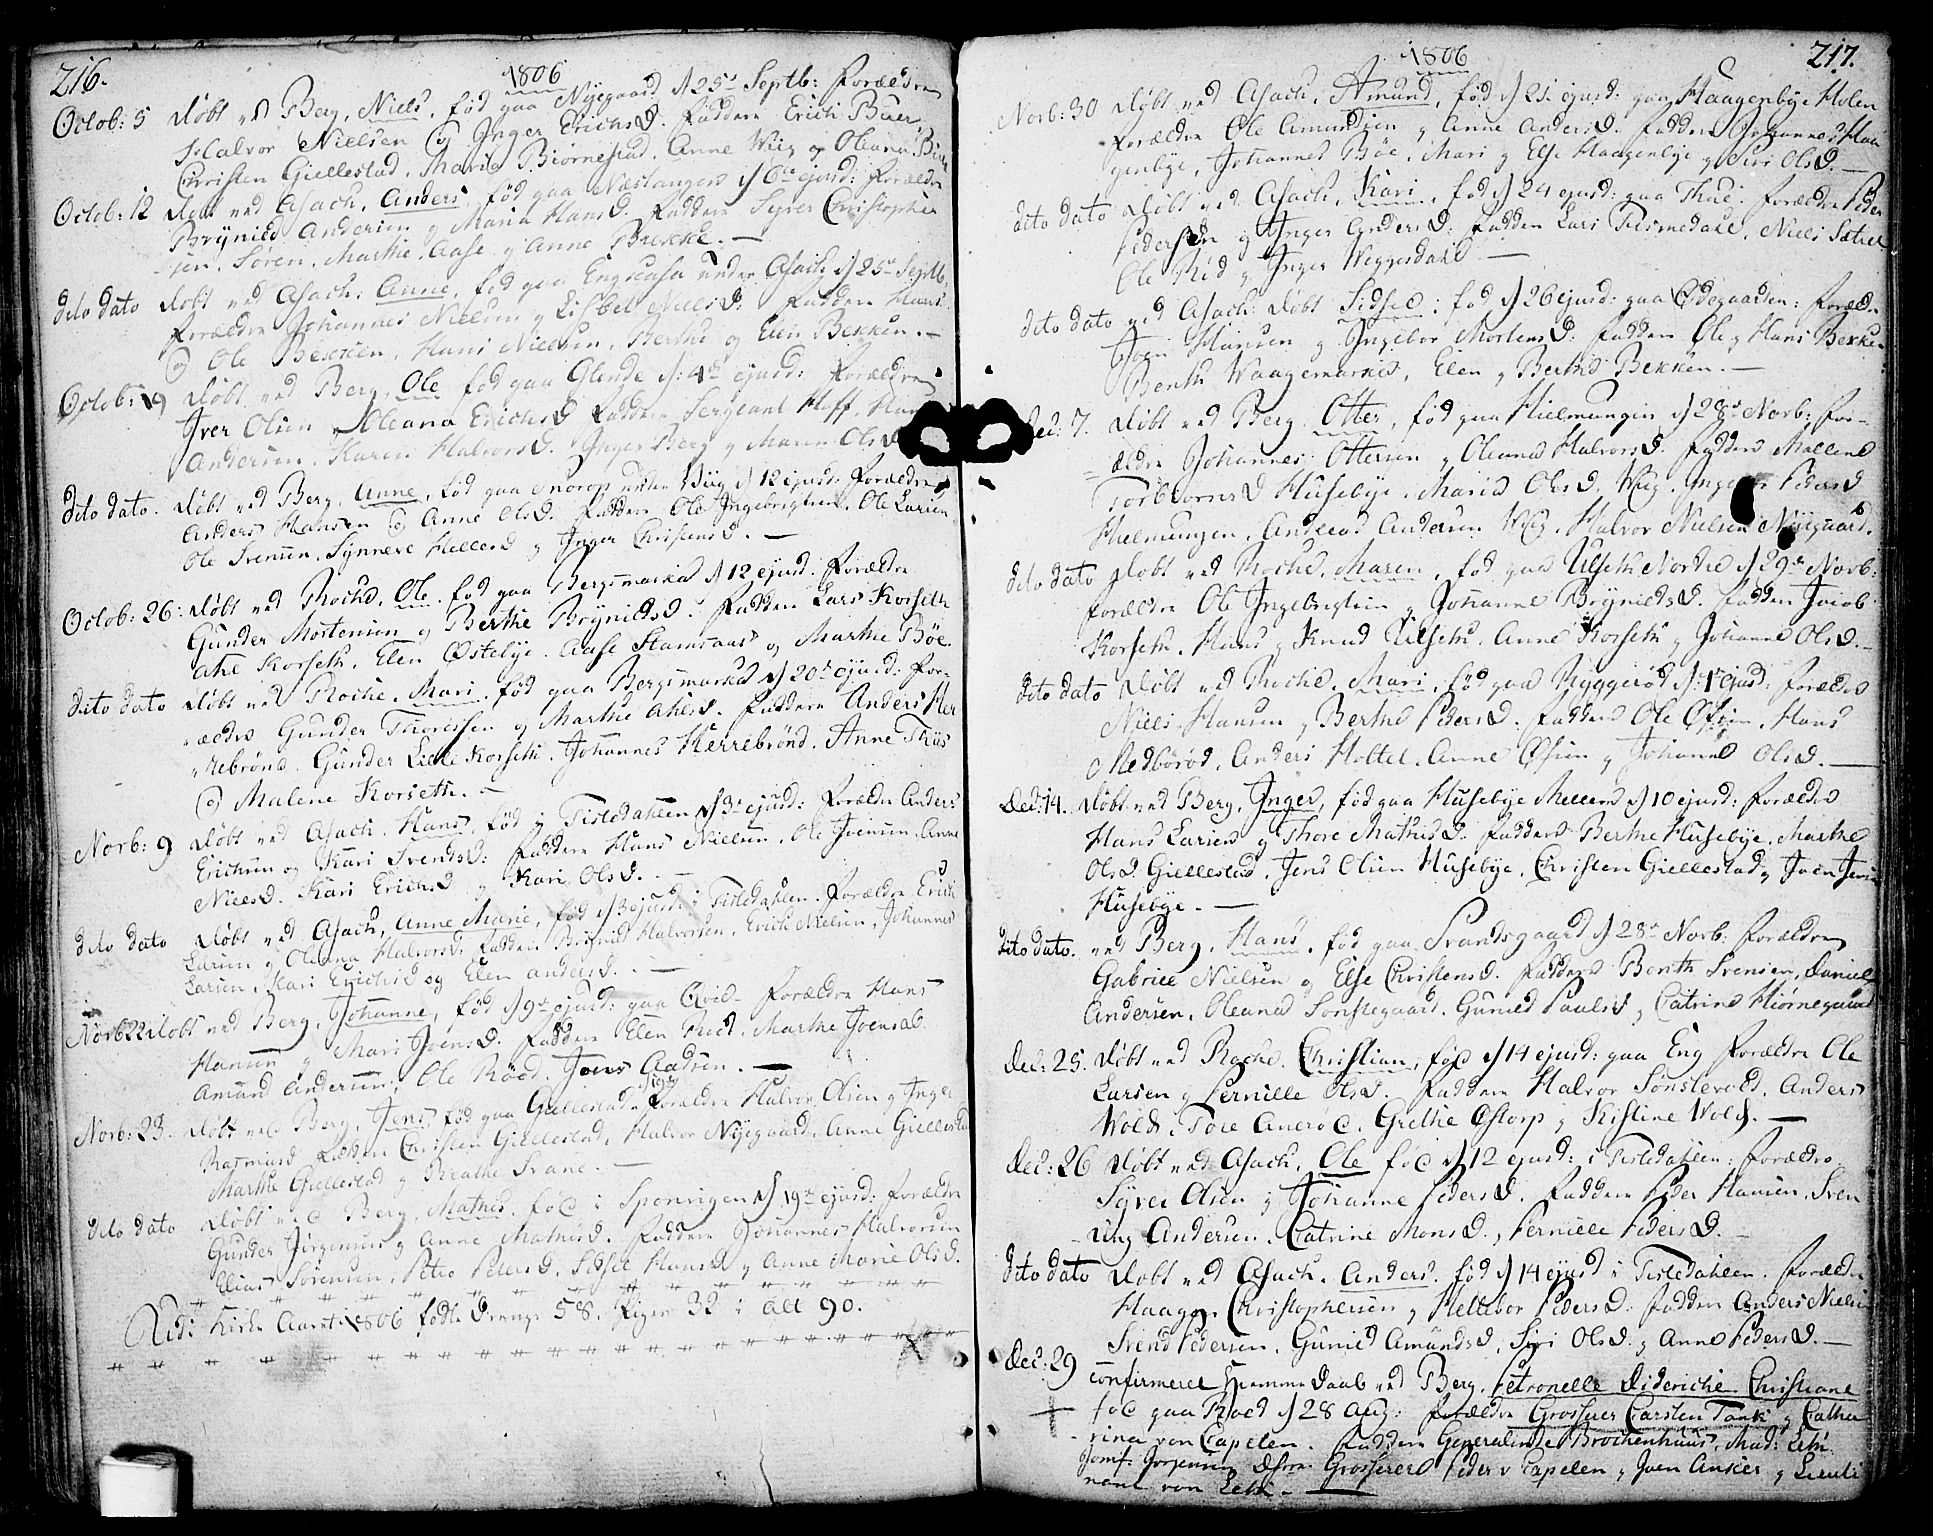 216.
1806
Octob: 5 Døbt ved Berg, Niels, fød paa Nyegaard d 25t Septb: Forældre
Halvor Nielsen og Inger Erichsd. Faddere Erich Buer,
Christen Giellestad, Maria Biørnestad, Anne Wiig og Oleana
Octob: 12 Døbt ved Asach, Anders, fød paa Næstangen d 6te ejusd: Forældre
Brynild Andersen og Maria Hansd. Faddere Syver Christopher
sen, Soren, Marthe, Aase og Anne Brekke. —
dito dato Døbt ved Asach: Anne, fød paa under Asach d 25t Septb.
Forældre Johannes Nielsen og Lisbet Nielsd: Faddere Hans
og Ole Bekken, Hans Nielsen, Berthe og Elen Bekken. —
Octob: 19 Døbt ved Berg, Ole fød paa Glende d: 4de ejusd: Forældre
Iver Olsen Oleana Erichsd Faddere Sergeant Hoff, Hans
Andersen, Karen Halvorsd. Inger Berg og Maren Olsd
dito dato. Døbt ved Berg, Anne, fød paa under Wiig d 12 ejusd: Forældre
Anders Hansen og Anne Olsd. Faddere Ole Ingebrigtsen, Ole Larsen,
Ole Svensen, Synneve Hellesd og Inger Christensd. —
Octob: 26: Døbt ved Rocke, Ole, fød paa Bergsmarka d 12 ejusd. Forældre
Gunder Mortensen og Berthe Brynildsd. Faddere Lars Korseth
Ahle Korseth, Elen Østebye, Aase og Marthe Bøe
dito dato Døbt ved Rocke, Mari, fød paa Bergsmarka d 20t ejusd: For-
ældre Gunder Thoressen og Marthe Ahlsd. Faddere Anders Her
rebrønd, Gunder Lille Korseth, Johannes Herrebrønd, Anne Thiis
og Malene Korseth. —
Norb: 9 Døbt ved Asach, Hans, fød i Tistedahlen d 3t ejusd: Forældre Anders
Erichsen og Kari Svendsd: Faddere Hans Nielsen, Ole Joensen, Anne
Nielsd. Kari Erichsd og Kari Olsd. —
dito dato Døbt ved Asach, Anne Marie, fød d 3 ejusd: i Tistedahlen. Forældre Erich
Larsen og Oleana Halvorsd: Faddere Brynild Halvorsen, Erich Nielsen, Johannes
Larsen, Kari Erichsd og Elen Andersd. —
Norb 22 Døbt ved Berg, Johanne, fød d 9t ejusd: paa Qvid. Forældre Hans
Hansen og Mari Joensd. Faddere Elen Roed, Marthe Joensd.
Amund Andersen, Ole Roed, Joens Aadsen. —
Norb: 23. Døbt ved Berg, Jens, fød paa Giellestad Forældre Halvor Olsen og Inger
Rasmusd Faddere Christen Giellestad, Halvor Nyegaard, Anne Giellestad
Marthe Giellestad og Svane. —
dito dato Døbt ved Berg, Mathis, fød i Sponvigen d 19t ejusd: Forældre
Gunder Jørgensen og Anne Mathisd. Faddere Johannes Halvorsen
Elias Sørensen, Petro Petersd, Sidsel Hansd og Anne Marie Olsd.
Kirke Aaret 1806 fødte Drenge 58. Piger 32 i alt 90.
1806
217.
Norb: 30 Døbt ved Asach, Amund, fød d 21. ejusd: paa Haagenbye Holen
Forældre Ole Amundsen og Anne Andersd. Faddere Johannes Haa
genbye, Johannes Bøe, Mari og Else Haagenbye og Siri Olsd. —
dito dato Døbt ved Asach, Kari, fød d 24 ejusd: paa Thue: Forældre Peder
Pedersen og Inger Andersd: Faddere Lars Tiesmedahl, Niels Sætre
Ole Rød og Inger Weggesdahl —
dito dato ved Asach: Døbt Sidsel: fød d 26 ejusd: paa Ødegaarden: Foræld
Hansen og Ingebor Mortensd: Faddere Ole og Hans Bekken
Berth Waagemarken, Elen og Berthe Bekken. —
Dec: 7. Døbt ved Berg. Otter, fød paa Hielmungen d 28t Norb: For-
ældre Johannes Ottersen og Oleana Halvorsd. Faddere Mallene
Torbiørnsd Husebye, Maria Olsd. Wiig, Pedersd
Hielmungen, Andreas Andersen Wiig, Halvor Nielsen Nyegaard.
dito dato Døbt ved Rocke, Maren, fød paa Ulseth Nordre d 29de Norb:
Forældre Ole Ingebrigtsen og Johanne Brynildsd. Faddere Jacob
Korseth, Hans og Knud Ulseth, Anne Korseth og Johanne Olsd. —
dito dato Døbt ved Rocke, Mari, fød paa Byggerød d: 1t ejusd: Forældre
Niels Hansen og Berthe Pedersd. Faddere Ole Øfsien, Hans
Medbørød, Anders Holtet, Anne Øsien og Johanne Olsd. —
Dec: 14. Døbt ved Berg, Inger, fød paa Husebye Mellem d 10 ejusd: Forældre
Hans Larsen og Thore Mathisd. Faddere Berthe Husebye, Marthe
Olsd Giellestad, Jens Olsen Husebye, Christen Giellestad og Joen Jens
Husebye. —
dito dato. ved Berg, Hans, fød paa Svandsgaard d 28t Norb. Forældre
Gabriel Nielsen og Else Christensd. Faddere Berth Svensen, Daniel
Andersen, Oleana Sonstegaard, Gunild Paulsd og Catrine Hiørnegaard
Dec: 25. Døbt ved Rocke. Christian, fød d 14 ejusd: paa Eng Forældre Ole
Larsen og Pernille Olsd. Faddere Halvor Sønstevold, Anders
Wold, Tore Anerød, Grethe Østorp og Kistine Wold. —
Dec: 26 Døbt ved Asach, Ole fød d 12 ejusd: i Tistedahlen: Forældre
Syver Olsen og Johanne Pedersd. Faddere Peder Hansen, Sven
ung Andersen. Catrine Monsd., Pernille Pedersd.
dito dato Døbt ved Asach. Anders. fød d 14 ejusd i Tistedahlen. Forældre
Haagen Christophersen og Hellebor Pedersd: Faddere Anders Niels
Svend Pedersen, Gunild Amundsd, Siri Olsd. og Anne Pedersd. —
Dec: 29 confirmeret Hjemme Daab ved Berg, Petronelle Dideriche Christiane
fød paa Roed d 28 Aug: Forældre Grosserer Carsten Tank og Catha
rina von Capelen. Faddere Generalinde Brochenhuus, Mad: Leth.
Jomf: Jørgensen Grosserer Peder v Capelen og Joen Anker og Lieute
nant von Leth. —